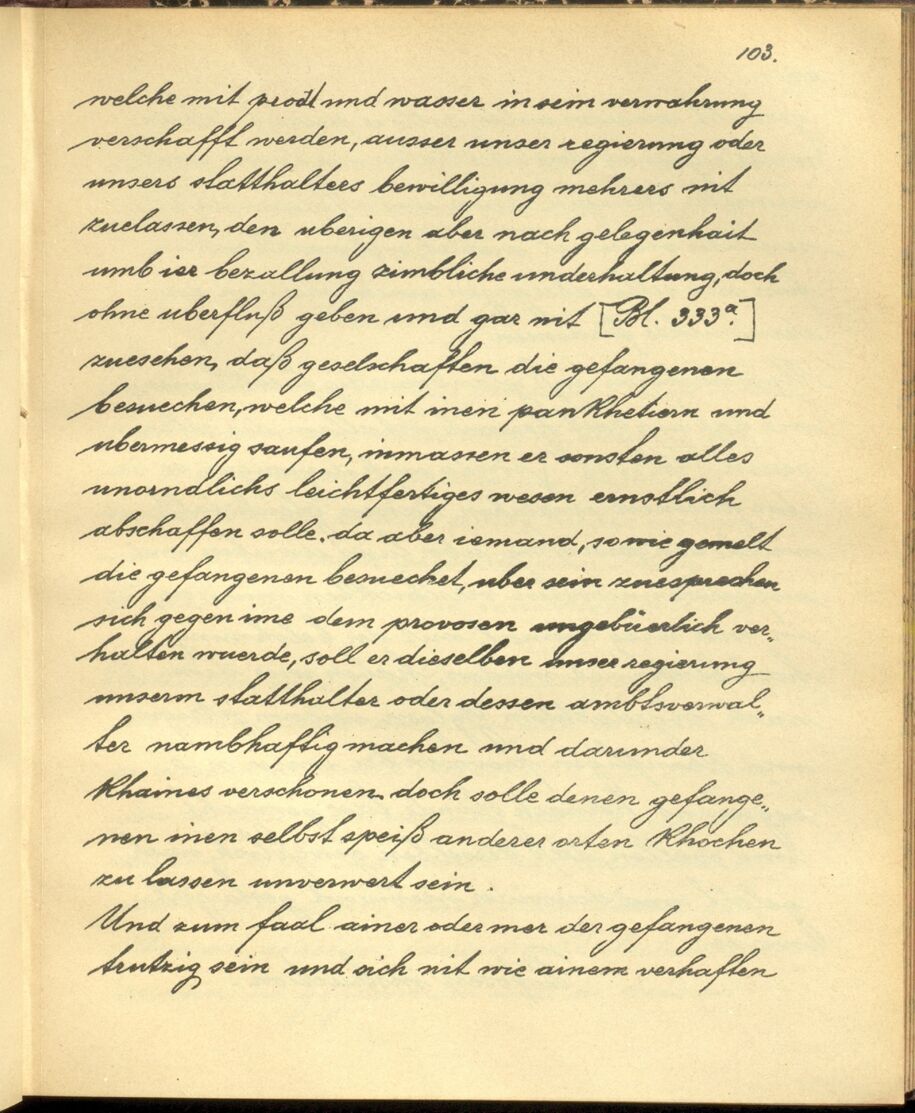 103.
welche mit prodt und wasser in sein verwahrung
verschafft werden, ausser unser regierung oder
unsers statthalters bewilligung mehrers nit
zuelassen, den uberigen aber nach gelegenhait
umb ier bezallung zimbliche underhaltung, doch
ohne uberfluß geben und gar nit [Bl. 333a.]
zuesehen, daß geselschaften die gefangenen
besuechen, welche mit inen pankhetiern und
ubermessig saufen, inmassen er sonsten alles
unorndlichs leichtfertiges wesen ernstlich
abschaffen solle. da aber iemand, so wie gemelt
die gefangenen besuechet, uber sein zuesprechen
sich gegen ime dem provosen ungebüerlich ver„
halten wuerde, soll er dieselben unser regierung
unserm statthalter oder dessen ambtsverwal„
ter nambhaftig machen und darunder
khaines verschonen. doch solle denen gefange„
nen inen selbst speiß anderer orten khochen
zu lassen unverwert sein.
Und zum faal ainer oder mer der gefangenen
trutzig sein und sich nit wie ainem verhaften